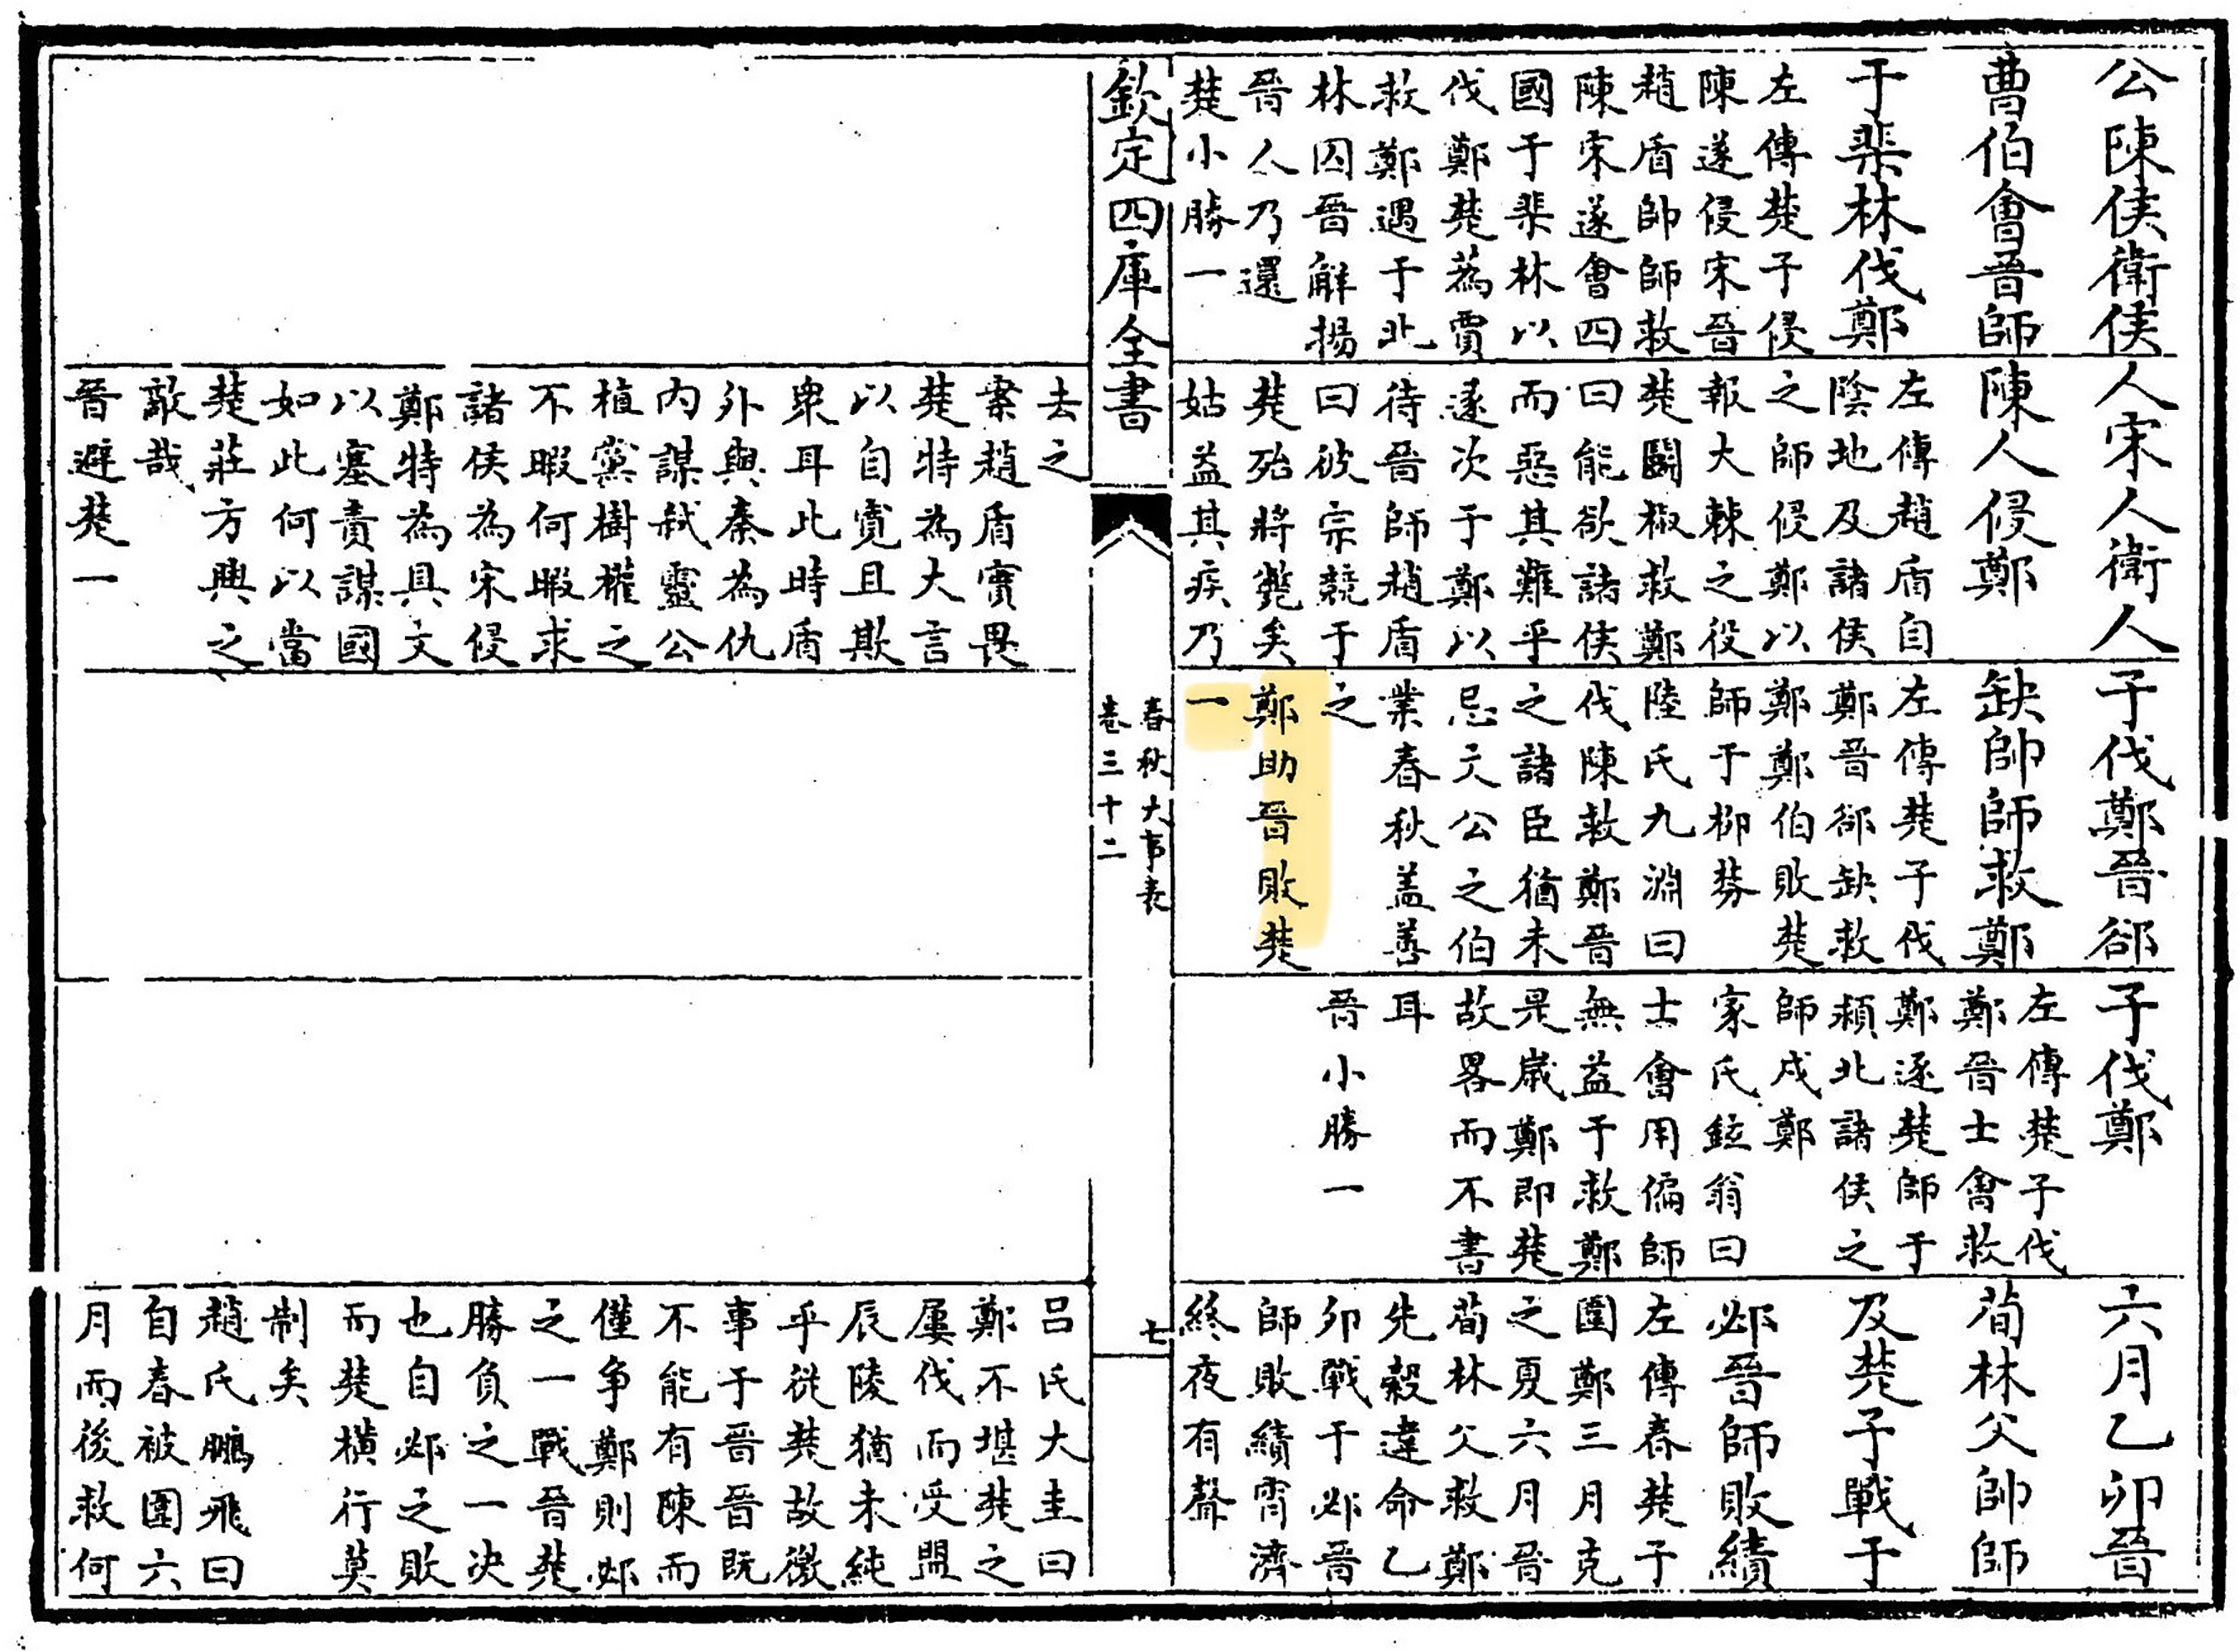 公陳侯衛侯
曹伯會晉師
于棐林伐鄭
左傳楚子侵
陳遂侵宋晉
趙盾帥師救
陳宋遂會四
國于棐林以
伐鄭楚蒍賈
救鄭遇于北
林囚晉解揚
晉人乃還
楚小勝一
人宋人衛人
陳人侵鄭
左傳趙盾自
陰地及諸侯
之師侵鄭以
報大棘之役
楚鬭椒救鄭
曰能欲諸侯
而惡其難乎
遂次于鄭以
待晉師趙盾
曰彼宗競于
楚殆將斃矣
姑益其疾乃
子伐鄭晉郤
缺帥師救鄭
左傳楚子伐
鄭晉郤缺救
鄭鄭伯敗楚
師于柳棼
陸氏九淵曰
伐陳救鄭晉
之諸臣猶未
忘文公之伯
業春秋蓋善
之
鄭助晉敗楚
一
子伐鄭
左傳楚子伐
鄭晉士會救
鄭逐楚師于
潁北諸侯之
師戍鄭
家氏鉉翁曰
士會用偏師
無益于救鄭
是歲鄭即楚
故畧而不書
耳
晉小勝一
六月乙卯晉
荀林父帥師
及楚子戰于
邲晉師敗績
左傳春楚子
圍鄭三月克
之夏六月晉
荀林父救鄭
先縠違命乙
卯戰于邲晉
師敗績宵濟
終夜有聲
欽定四庫全書
春秋大事表
卷三十二
七
去之
案趙盾實畏
楚特為大言
以自寬且欺
衆耳此時盾
外與秦為仇
內謀弑靈公
植黨樹權之
不暇何暇求
諸侯為宋侵
鄭特為具文
以塞責謀國
如此何以當
楚莊方興之
敵哉
晉避楚一
呂氏大圭曰
鄭不堪楚之
屢伐而受盟
辰陵猶未純
乎從楚故徼
事于晉晉既
不能有陳而
僅爭鄭則邲
之一戰晉楚
勝負之一决
也自邲之敗
而楚橫行莫
制矣
趙氏鵬飛曰
自春被圍六
月而後救何